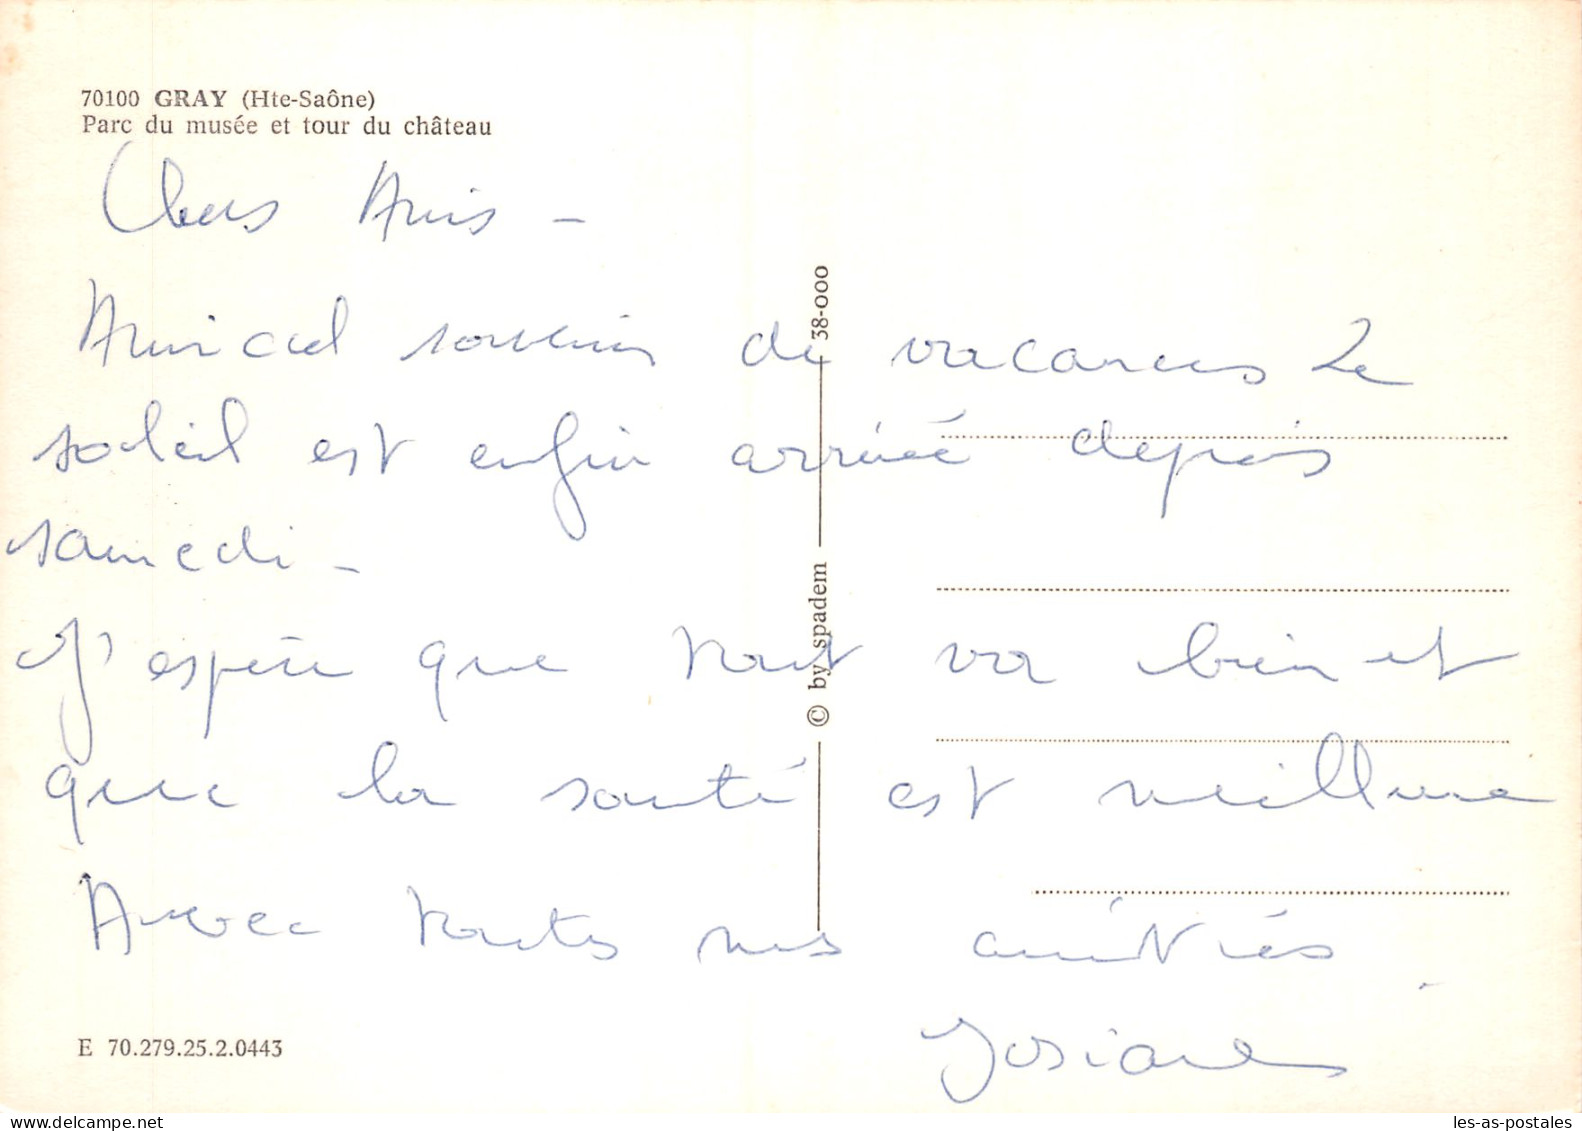 70100 GRAY (Hte-Saône)
Parc du musée et tour du château
Chers Amis -
Amical souvenir de vacances Le
soleil est enfin arrivée depuis
samedi -
J'espère que tout va bien et
que la santé est meilleure
Avec toutes nos amitiés.
Josiane
38-000
© by spadem
E 70.279.25.2.0443
les-as-postales